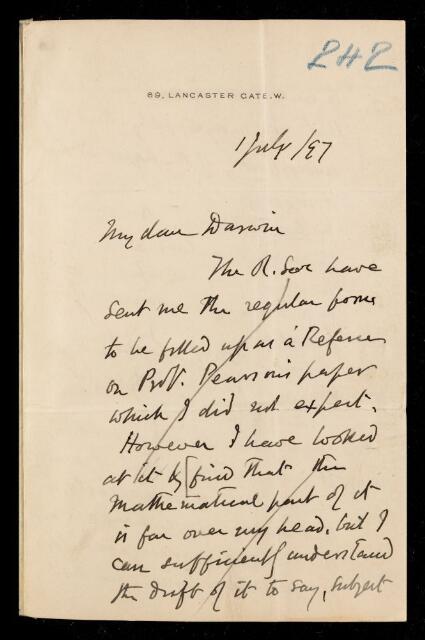 242
69, LANCASTER GATE. W.
1 July /97
My dear Darwin
The R. Soc have
sent me the regular form
to be filled up as a Referee
on Prof. Pearson's paper
which I did not expect.
However I have looked
at it & [find that the
mathematical part of it
is far over my head, but I
can sufficiently understand
the drift of it to say, subject